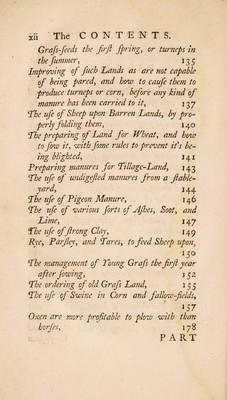 xii The CONTENTS.
Graſs-ſeeds the firſt ſpring, or turneps in
the ſummer, 135
Improving of ſuch Lands as are not capable
of being pared, and how to cauſe them to
produce turneps or corn, before any kind of
manure has been carried to it, 137
The uſe of Sheep upon Barren Lands, by pro-
perly folding them, 140
The preparing of Land for Wheat, and how
to ſow it, with ſome rules to prevent it's be-
ing blighted, 141
Preparing manures for Tillage-Land, 143
The uſe of undigeſted manures from a ſtable-
yard, 144
The uſe of Pigeon Manure, 146
The uſe of various ſorts of Aſhes, Soot, and
Lime, 147
The uſe of ſtrong Clay, 149
Rye, Parſley, and Tares, to feed Sheep upon,
150
The management of Young Graſs the firſt year
after ſowing, 152
The ordering of old Graſs Land, 155
The uſe of Swine in Corn and fallow-fields,
157
Oxen are more profitable to plow with than
horſes, 178
PART